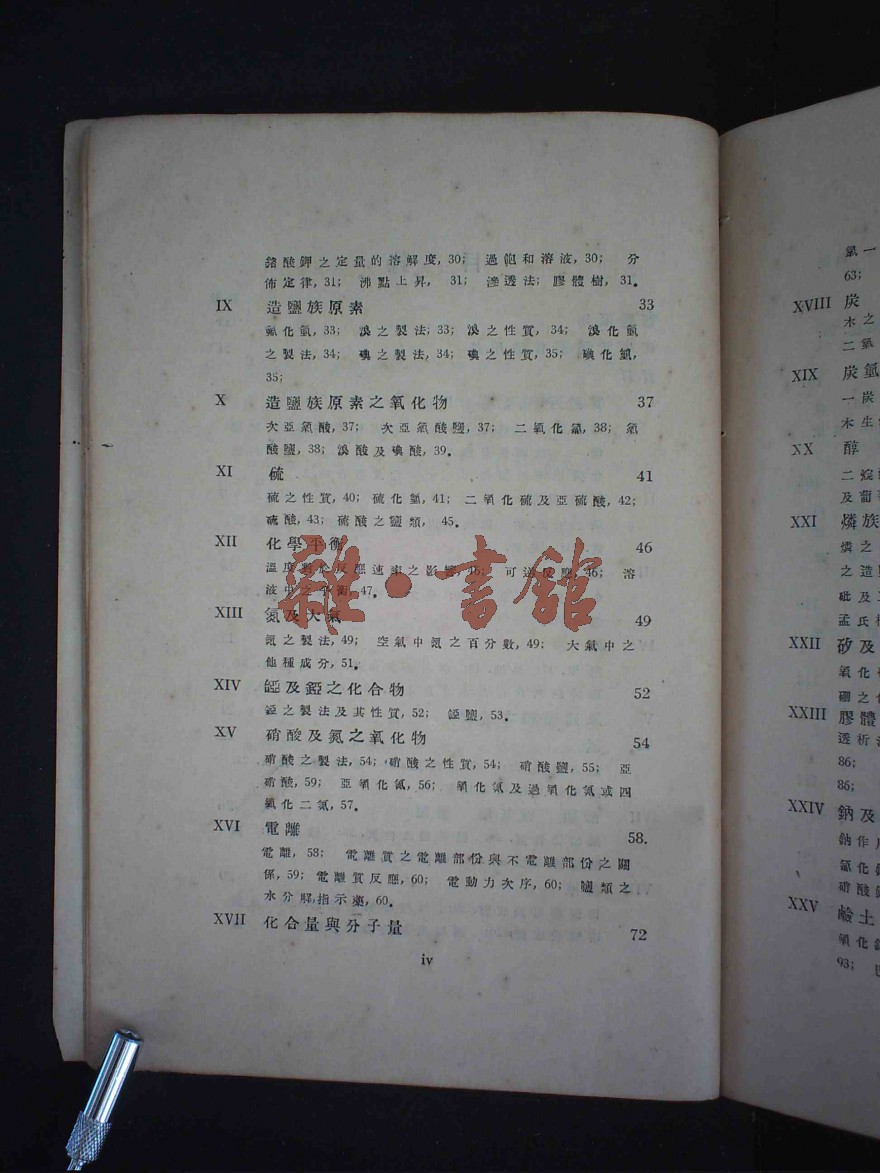 鉻酸鉀之定量的溶解度, 30; 過飽和溶液, 30; 分
佈定律, 31; 沸點上昇, 31; 滲透法; 膠體樹, 31。
IX 造鹽族原素 33
氟化氫, 33; 溴之製法; 33; 溴之性質, 34; 溴化氫
之製法, 34; 碘之製法, 34; 碘之性質, 35; 碘化氫,
35;
X 造鹽族原素之氧化物 37
次亞氯酸, 37; 次亞氯酸鹽, 37; 二氧化氯, 38; 氯
酸鹽, 38; 溴酸及碘酸, 39。
XI 硫 41
硫之性質, 40; 硫化氫, 41; 二氧化硫及亞硫酸, 42;
硫酸, 43; 硫酸之鹽類, 45。
XII 化學平衡 46
溫度對於反應速率之影響, 46; 可逆反應, 46; 溶
液中之平衡, 47。
XIII 氮及大氣 49
氮之製法, 49; 空氣中氮之百分數, 49; 大氣中之
他種成分, 51。
XIV 錏及錏之化合物 52
錏之製法及其性質, 52; 錏鹽, 53。
XV 硝酸及氮之氧化物 54
硝酸之製法, 54; 硝酸之性質, 54; 硝酸鹽, 55; 亞
硝酸, 59; 亞氧化氮, 56; 氧化氮及過氧化氮或四
氧化二氮, 57。
XVI 電離 58.
電離, 58; 電離質之電離部份與不電離部份之關
係, 59; 電離質反應, 60; 電動力次序, 60; 鹽類之
水分解, 指示藥, 60。
XVII 化合量與分子量 72
iv
雜·書館
氫一
63;
XVIII 炭
木之
二氧
XIX 炭氫
一炭
木生
XX 醇
二烷
及葡
XXI 燐族
燐之
之造
砒及
孟氏
XXII 矽及
氧化
硼之
XXIII 膠體
透析
86;
86;
XXIV 鈉及
鈉作
氯化
硝酸
XXV 鹼土
氧化
93;